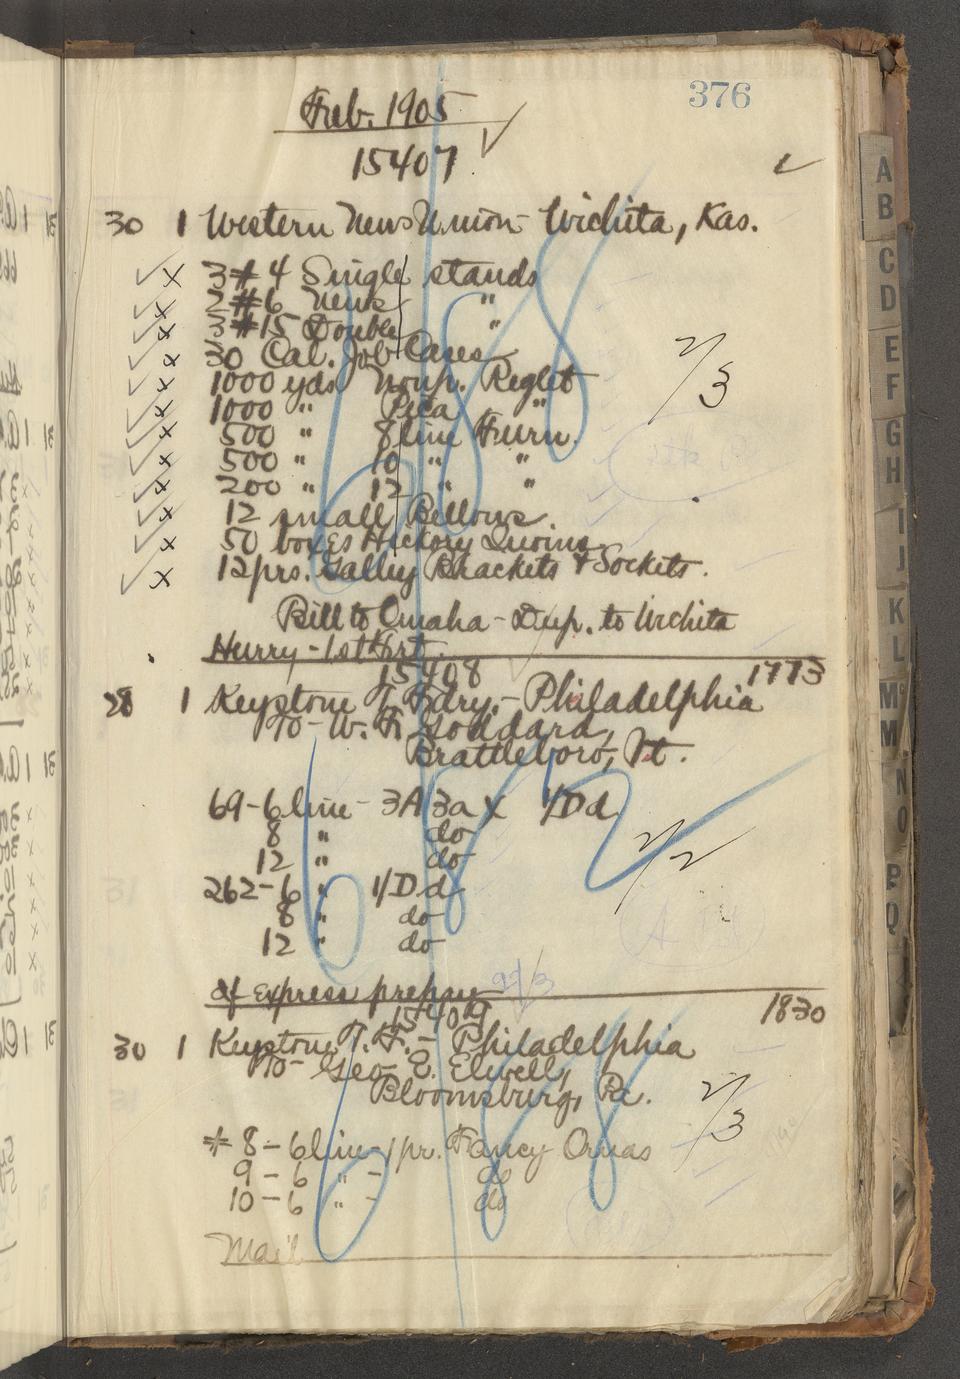 376
Feb. 1905
15407
30 1 Western News Union - Wichita, Kas.
3 #4 Single stands
2 #6 News "
3 #15 Double "
30 Cal. Job Cases
1000 yds Noup. Reglet
1000 " Pica "
500 " 8 line Furn.
500 " 10 " "
200 " 12 " "
12 small Bellows.
50 boxes Hickory Quoins
12 prs. Galley Brackets & Sockets.
2/3
Bill to Omaha - Dup. to Wichita
Hurry - 1st Frt.
15408 1773
28 1 Keystone T. Fdry. - Philadelphia
To - W. F. Goddard,
Brattleboro, Vt.
69 - 6 line - 3A 3a x 1/D d
8 " do
12 " do
262 - 6 " 1/D d
8 " do
12 " do
2/2
If Express prepay
15409 1830
30 1 Keystone T. F. - Philadelphia
To - Geo. E. Elwell,
Bloomsburg, Pa.
2/3
# 8 - 6 line - 1 pr. Fancy Ornas
9 - 6 " - do
10 - 6 " - do
Mail
A
B
C
D
E
F
G
H
I
J
K
L
Mc
M
N
O
P
Q